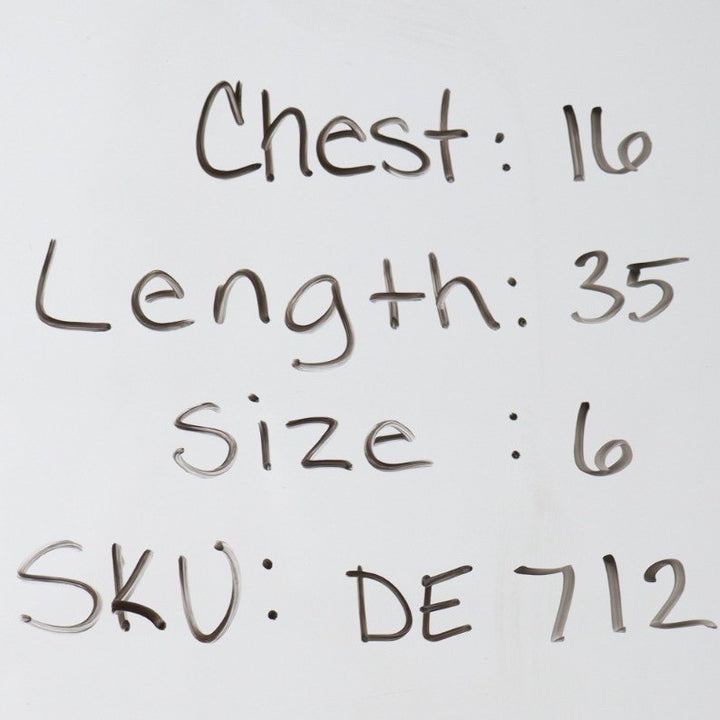 Chest: 16
Length: 35
Size : 6
SKU: DE 712